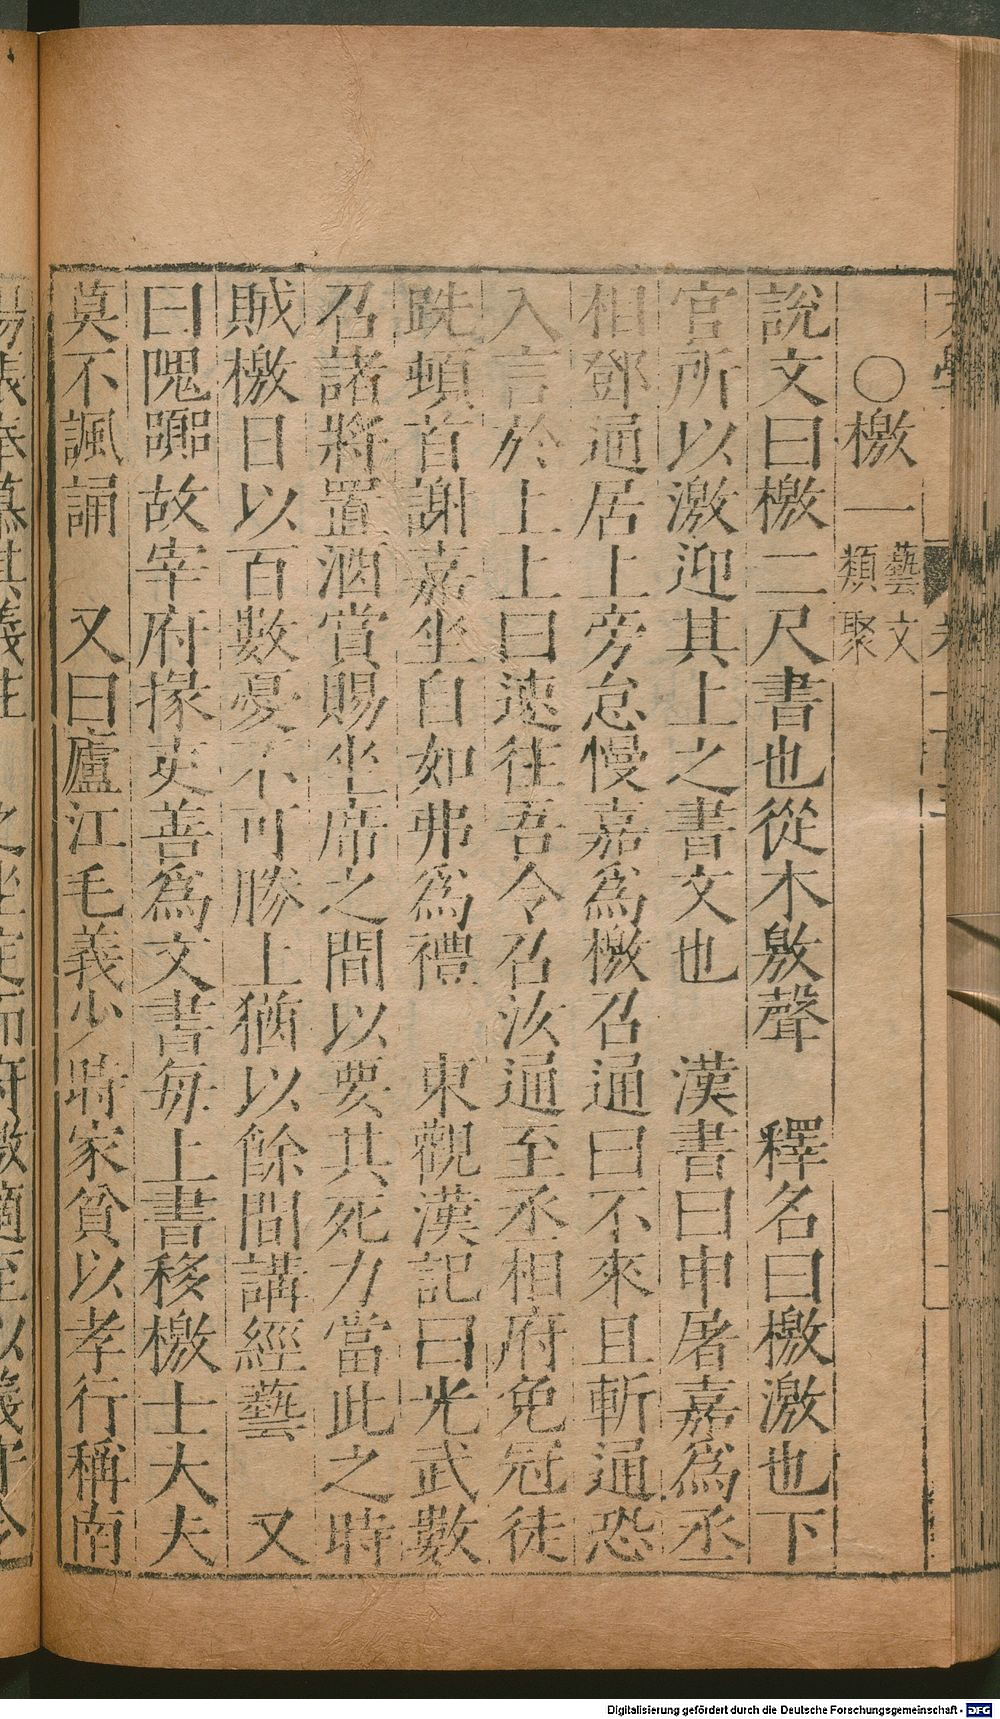 ○檄一藝文類聚
說文曰檄二尺書也從木敫聲　釋名曰檄激也下
官所以激迎其上之書文也　漢書曰申屠嘉爲丞
相鄧通居上旁怠慢嘉爲檄召通曰不來且斬通恐
入言於上上曰速往吾令召汝通至丞相府免冠徒
跣頓首謝嘉坐自如弗爲禮　東觀漢記曰光武數
召諸將置酒賞賜坐席之間以要其死力當此之時
賊檄日以百數憂不可勝上猶以餘間講經藝　又
曰隗囂故宰府掾吏善爲文書每上書移檄士大夫
莫不諷誦　又曰廬江毛義少時家貧以孝行稱南
陽張奉慕其義往　之坐定而府檄適至以義守令
Digitalisierung gefördert durch die Deutsche Forschungsgemeinschaft - DFG